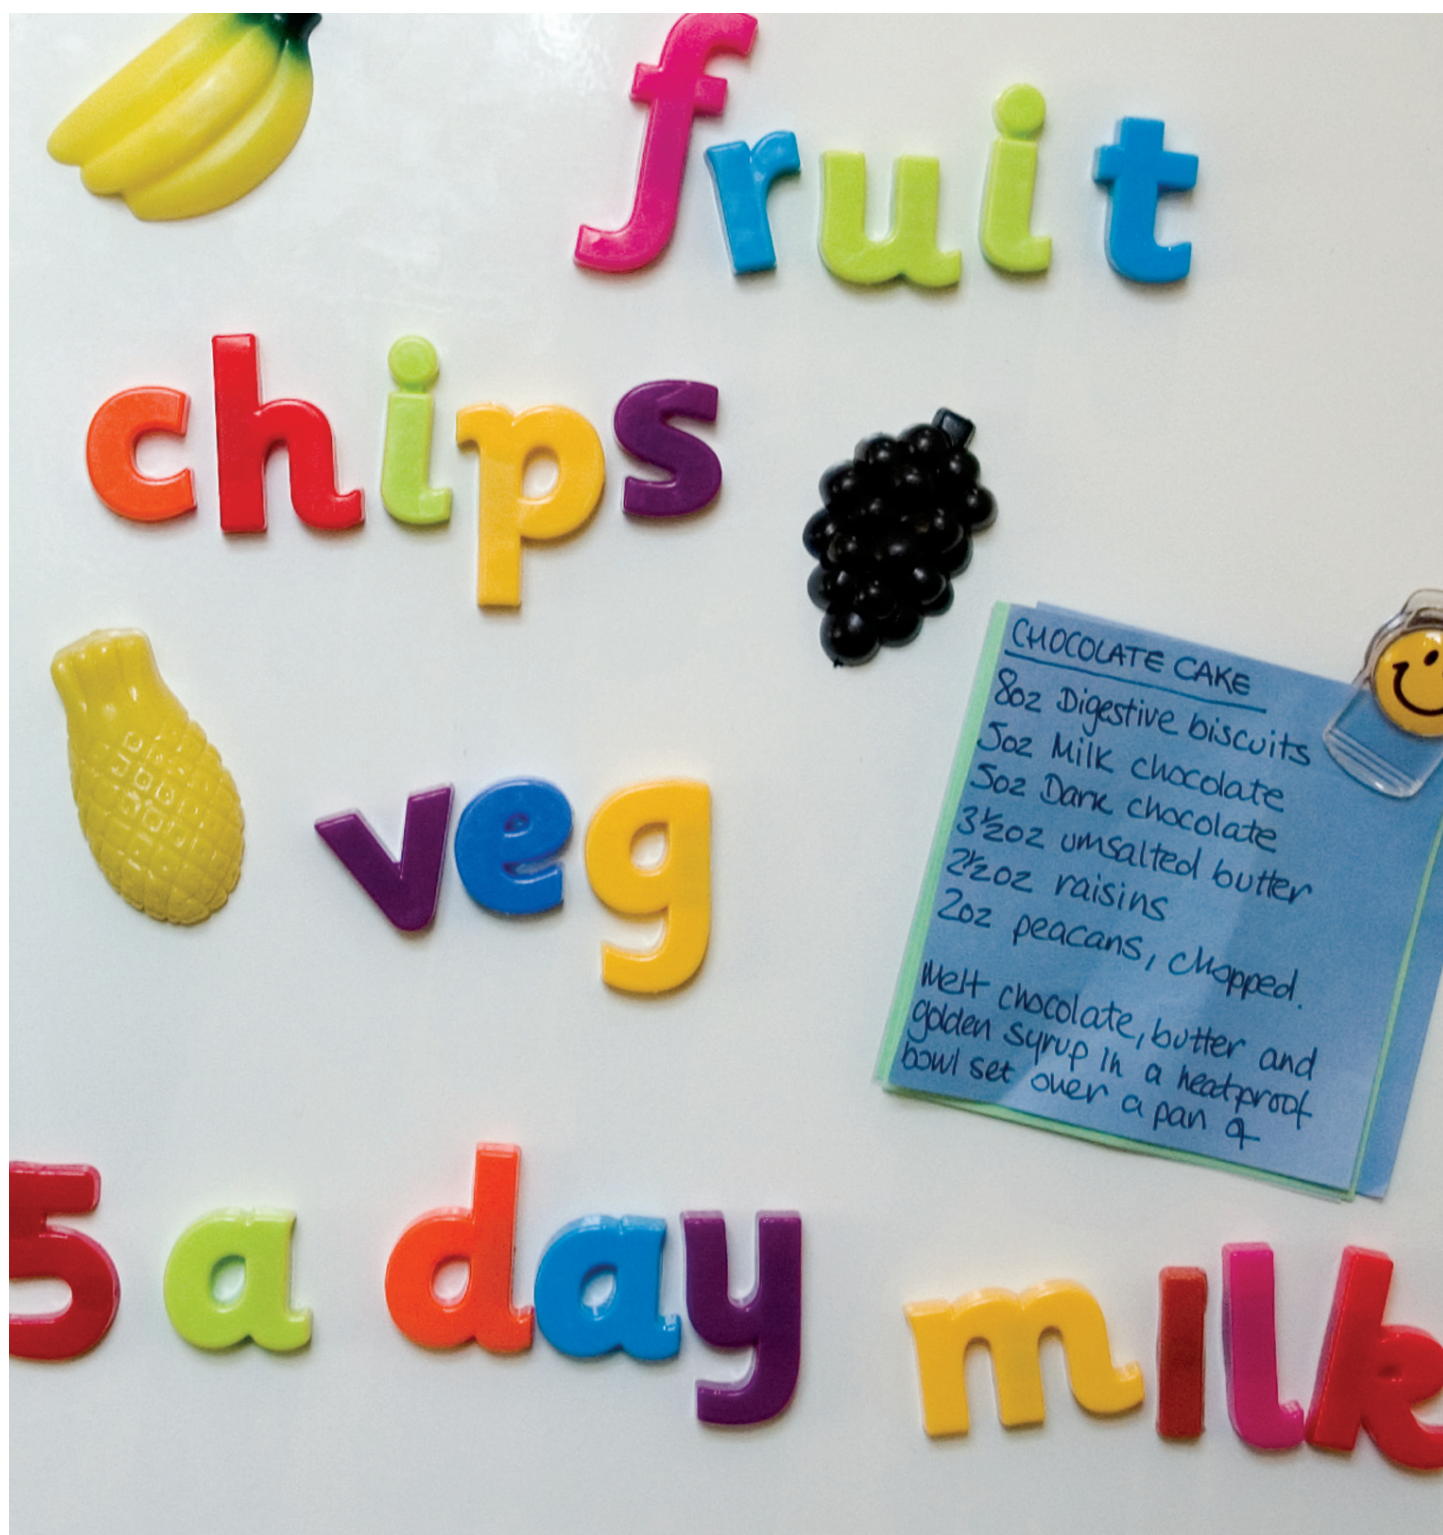 fruit
chips
veg
5 a day
milk
CHOCOLATE CAKE
8oz Digestive biscuits
5oz Milk chocolate
5oz Dark chocolate
3½oz umsalted butter
2½oz raisins
2oz peacans, chopped.
Melt chocolate, butter and
golden syrup in a heatproof
bowl set over a pan of